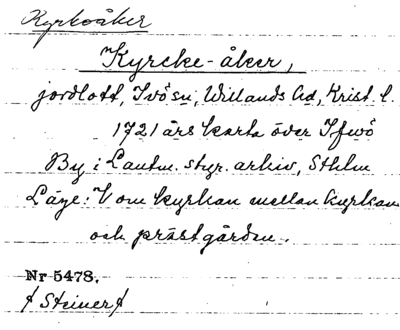 Kyrkoåker
Kyrcke-åker,
jordlott, Ivösn, Willands hd, Krist. l.
1721 års karta över Ifwö
By i Lantm. styr. arkiv, Sthlm
Läge: V om kyrkan mellan kyrkan
och prästgården.
Nr 5478.
/Steiner/